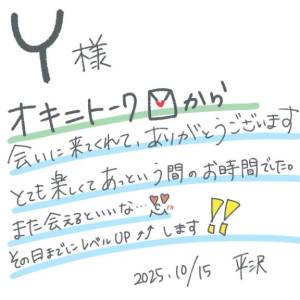 Y様
オキニトーク💌から
会いに来てくれて、ありがとうございます
とても楽しくてあっという間のお時間でした。
また会えるといいな…
その日までにレベルUPします!!
2025.10/15 平沢